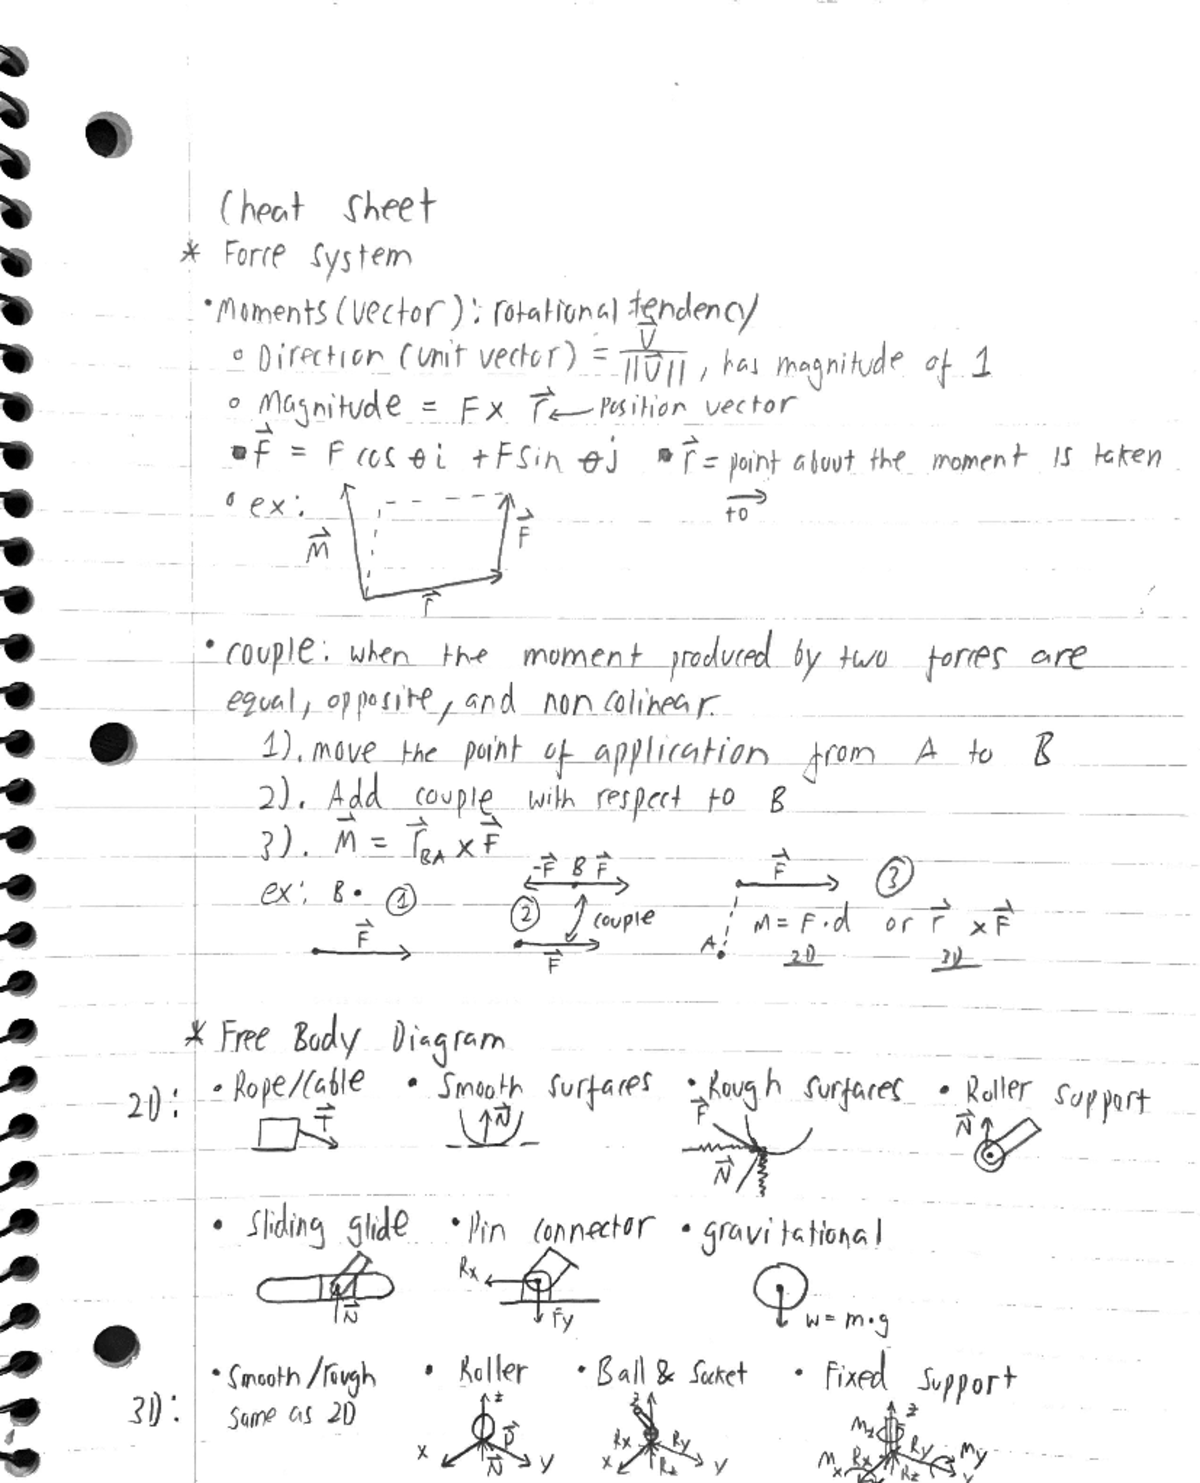 Cheat sheet
* Force system
• Moments (vector): rotational tendency
◦ Direction (unit vector) = V⃗/||V⃗||, has magnitude of 1
◦ Magnitude = F × r⃗ ← Position vector
▪ F⃗ = F cos θ i + F sin θ j ▪ r⃗ = point about the moment is taken
to
◦ ex:
M⃗ F⃗
r⃗
• couple: when the moment produced by two forces are
equal, opposite, and non colinear.
1). move the point of application from A to B
2). Add couple with respect to B
3). M⃗ = r⃗BA × F⃗
ex: B • ① F⃗
-F⃗ B F⃗ ② couple F⃗
F⃗ ③
A: M = F · d or r⃗ × F⃗
2D 3D
* Free Body Diagram
2D: • Rope/Cable • Smooth surfaces • Rough surfaces • Roller support
T⃗ N⃗ F⃗ N⃗ N⃗
• Sliding glide • Pin connector • gravitational
N⃗ Rx Fy W = m·g
3D: • Smooth/rough • Roller • Ball & Socket • Fixed support
same as 2D
z x N⃗ y
z Rx Ry x Rz y
z Mz Mx Rx Ry My Rz